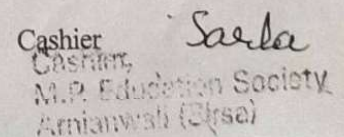 Cashier Sarla
Cashier,
M.P. Education Society
Arnianwali (Sirsa)